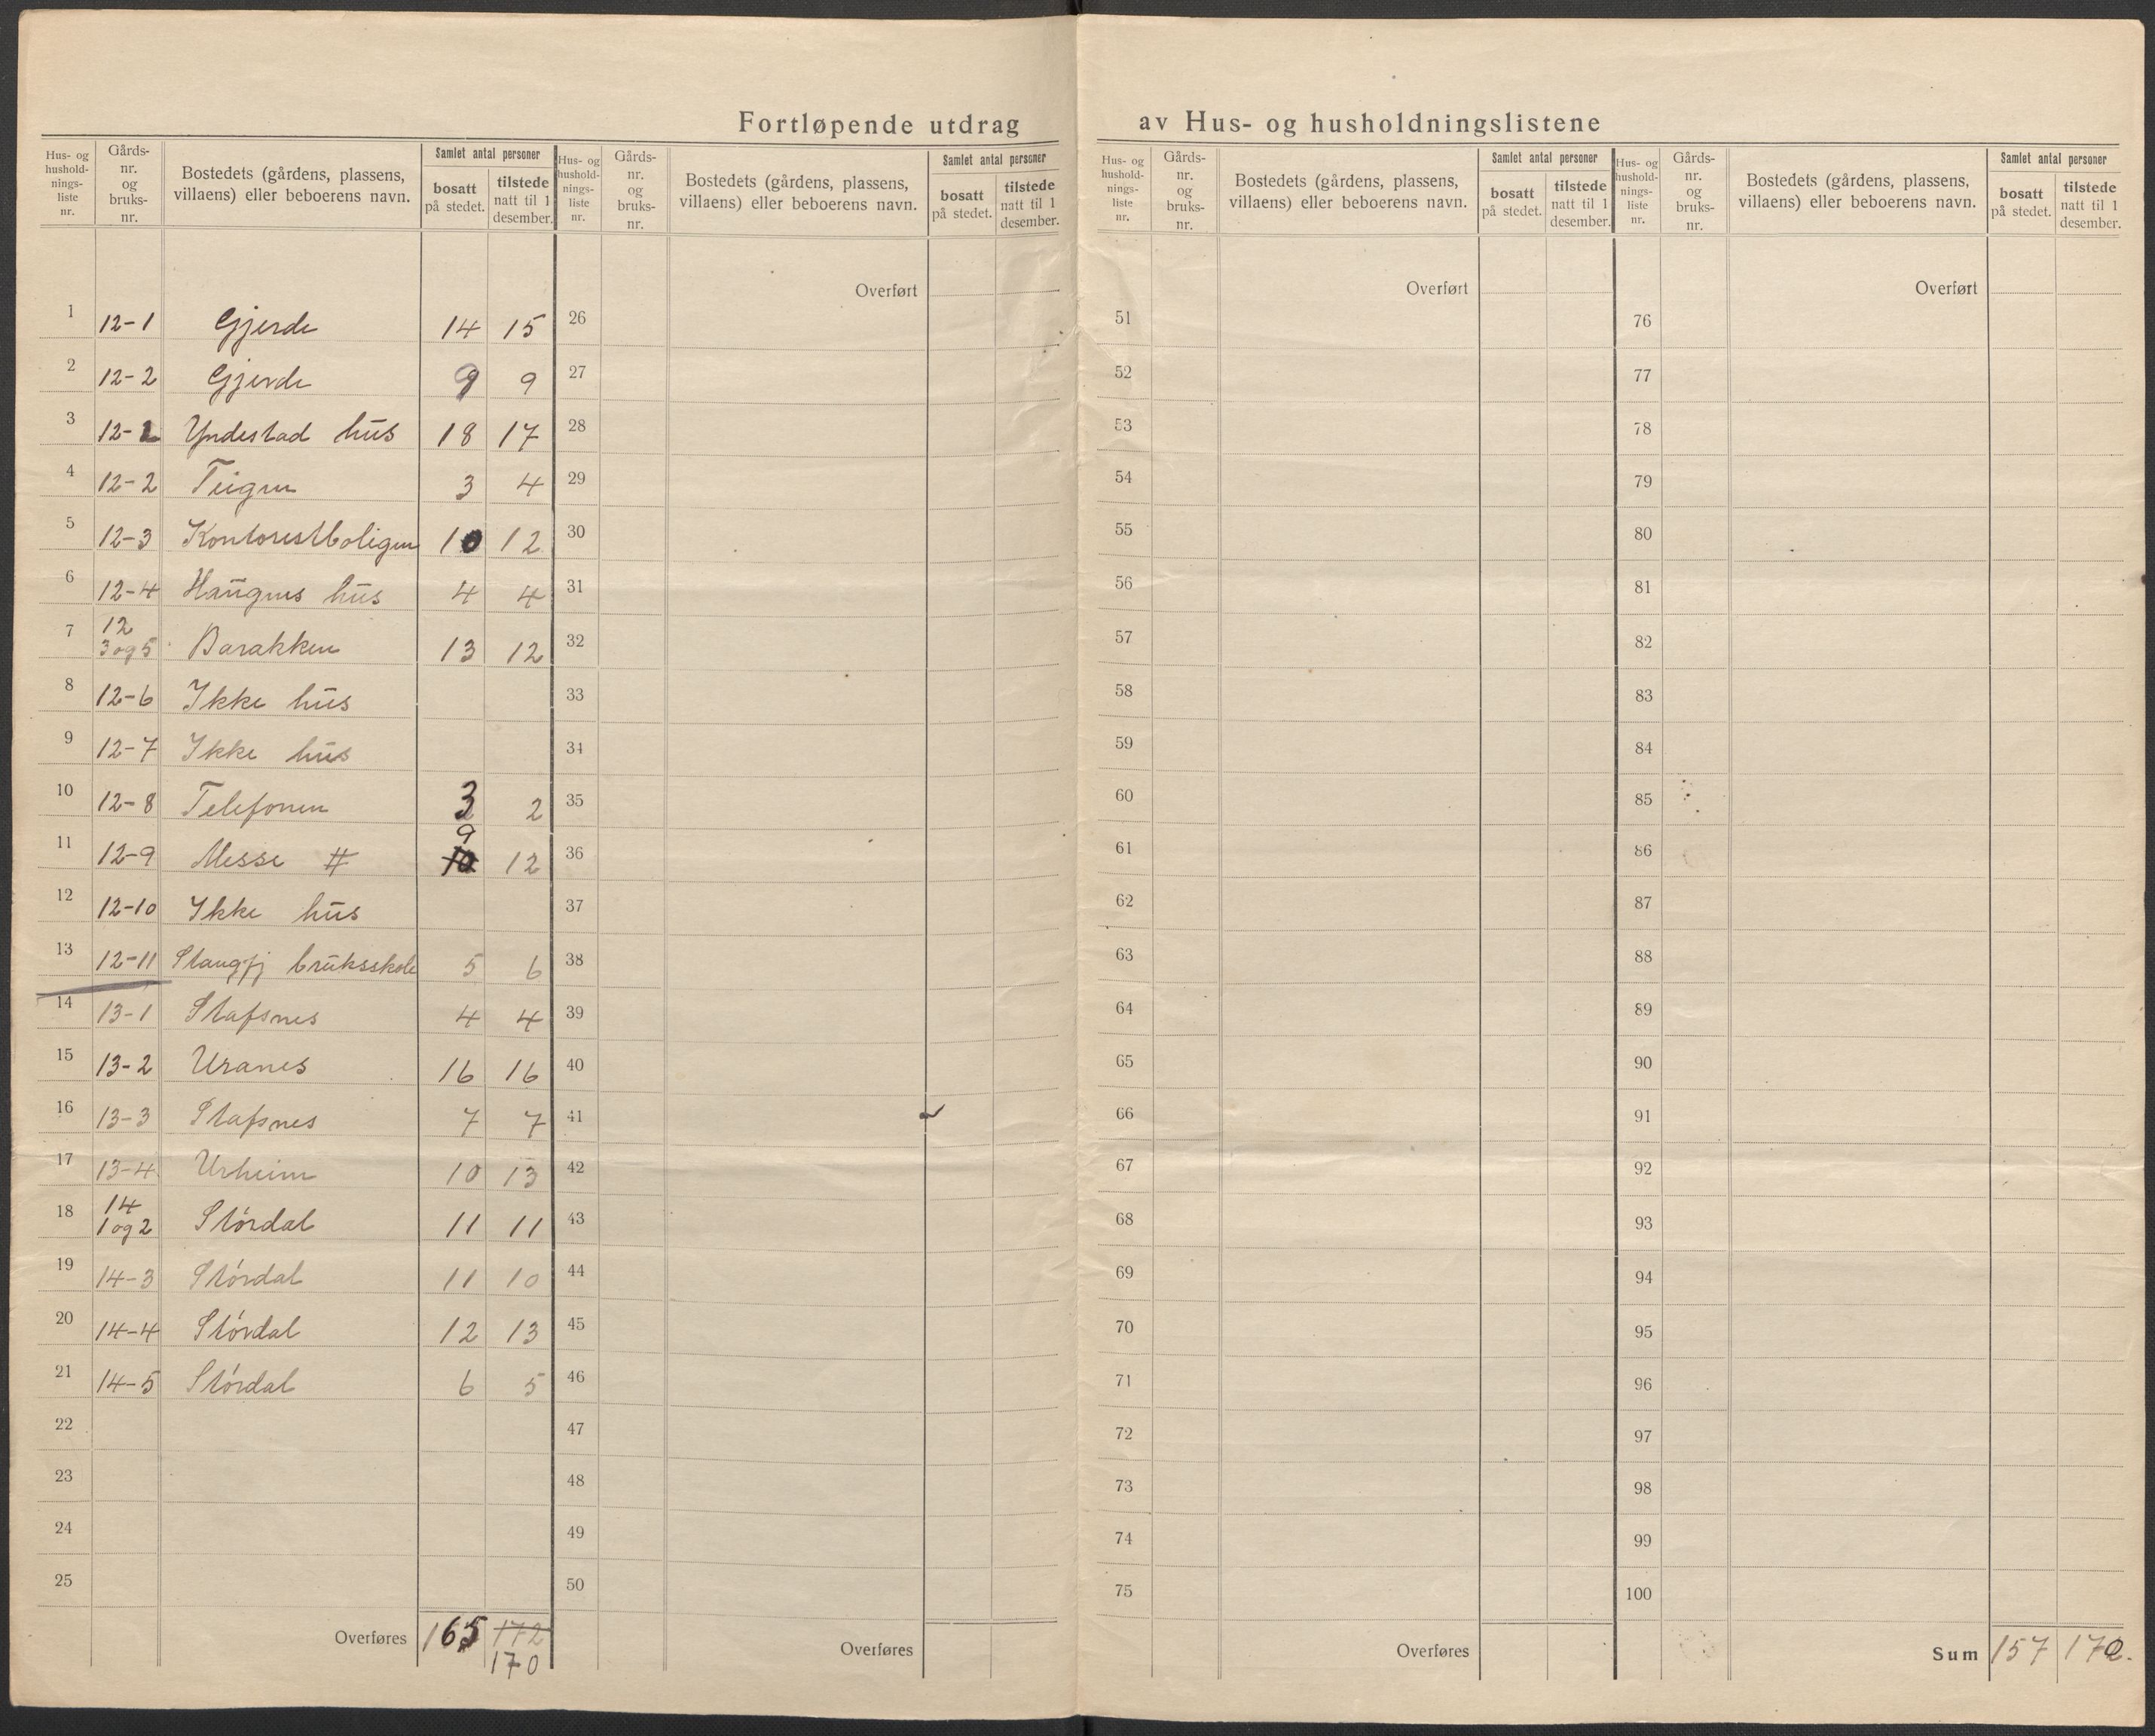 Fortløpende utdrag av Hus- og husholdningslistene
Hus- og hushold- nings- liste nr. Gårds- nr. og bruks- nr. Bostedets (gårdens, plassens, villaens) eller beboerens navn. Samlet antal personer bosatt på stedet. tilstede natt til 1 desember.
Hus- og hushold- nings- liste nr. Gårds- nr. og bruks- nr. Bostedets (gårdens, plassens, villaens) eller beboerens navn. Samlet antal personer bosatt på stedet. tilstede natt til 1 desember.
Hus- og hushold- nings- liste nr. Gårds- nr. og bruks- nr. Bostedets (gårdens, plassens, villaens) eller beboerens navn. Samlet antal personer bosatt på stedet. tilstede natt til 1 desember.
Hus- og hushold- nings- liste nr. Gårds- nr. og bruks- nr. Bostedets (gårdens, plassens, villaens) eller beboerens navn. Samlet antal personer bosatt på stedet. tilstede natt til 1 desember.
1 12-1 Gjerde 14 15
2 12-2 Gjerde 9 9
3 12-1 Yndestad hus 18 17
4 12-2 Teigen 3 4
5 12-3 Kontoristboligen 10 12
6 12-4 Haugens hus 4 4
7 12 3 og 5 Barakken 13 12
8 12-6 Ikke hus
9 12-7 Ikke hus
10 12-8 Telefonen 3 2
11 12-9 Messe # 9 10 12
12 12-10 Ikke hus
13 12-11 Stangfj bruksskole 5 6
14 13-1 Stafsnes 4 4
15 13-2 Uranes 16 16
16 13-3 Stafsnes 7 7
17 13-4 Urheim 10 13
18 14 1 og 2 Stórdal 11 11
19 14-3 Stórdal 11 10
20 14-4 Stórdal 12 13
21 14-5 Stórdal 6 5
22
23
24
25
Overføres 165 172
170
Overført
26
27
28
29
30
31
32
33
34
35
36
37
38
39
40
41
42
43
44
45
46
47
48
49
50
Overføres
Overført
51
52
53
54
55
56
57
58
59
60
61
62
63
64
65
66
67
68
69
70
71
72
73
74
75
Overføres
Overført
76
77
78
79
80
81
82
83
84
85
86
87
88
89
90
91
92
93
94
95
96
97
98
99
100
Sum 157 170.